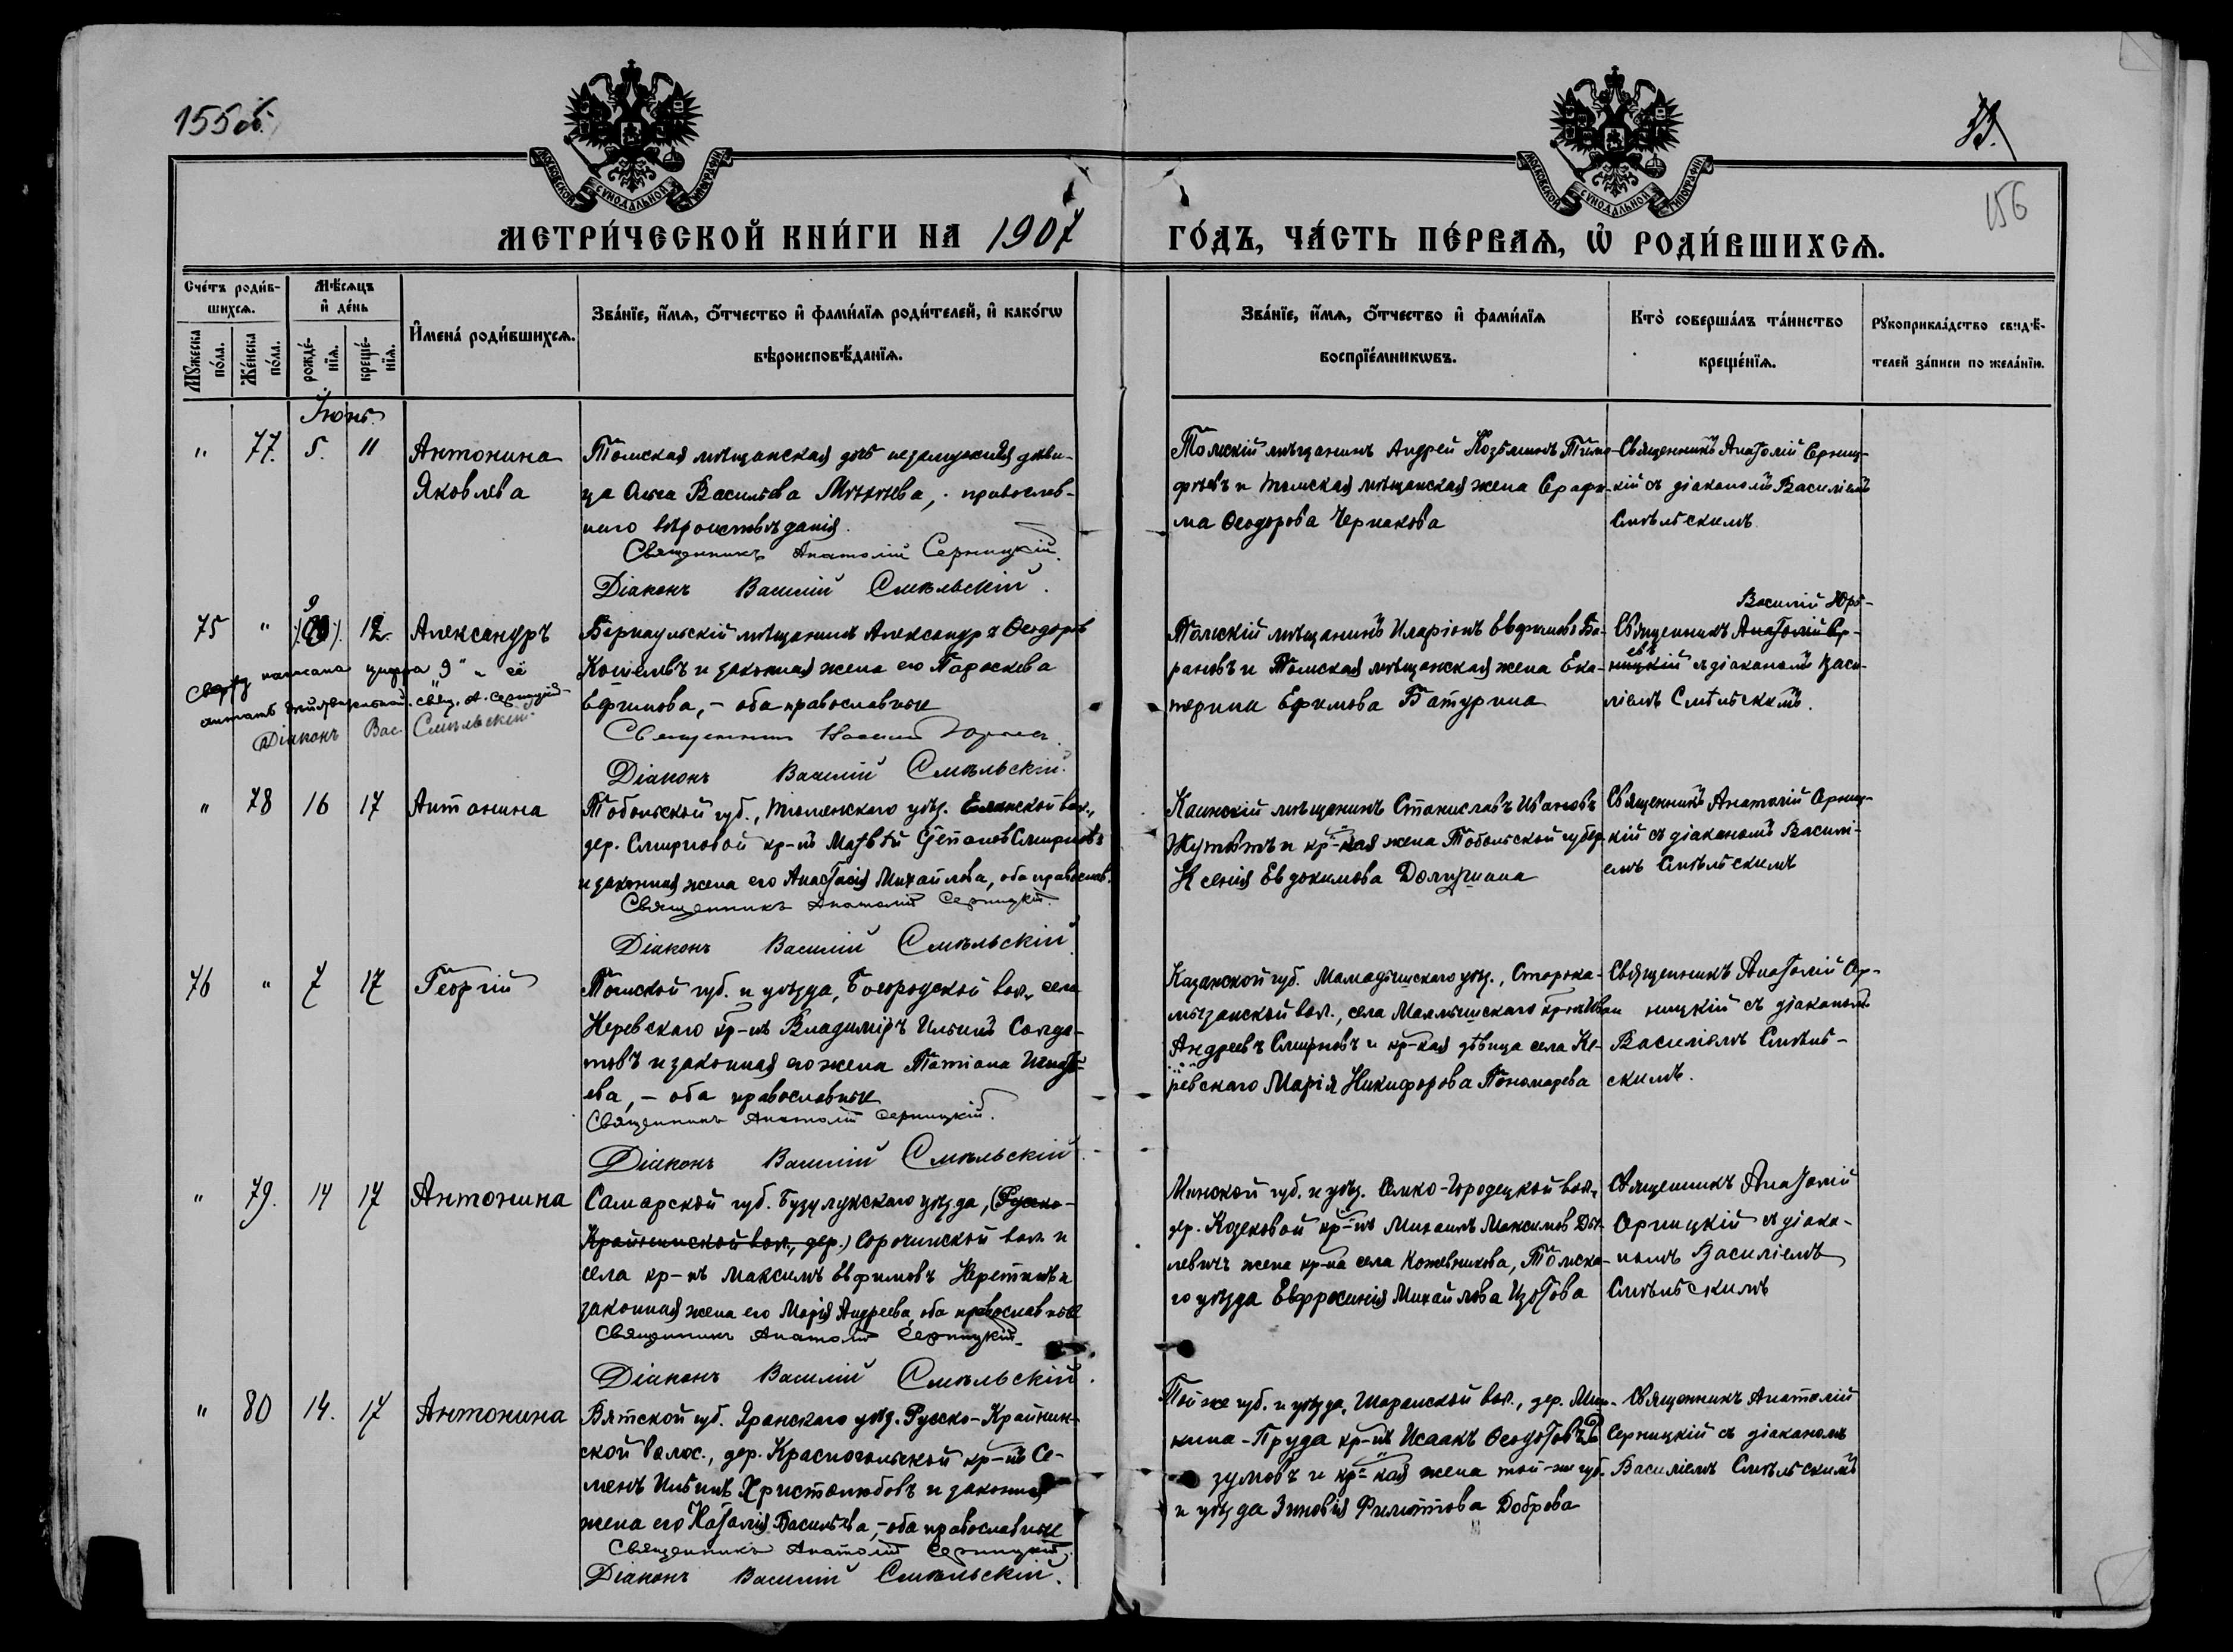 155 об.
33.
156
МОСКОВСКОЙ СѴНОДАЛЬНОЙ ТИПОГРАФІИ
МОСКОВСКОЙ СѴНОДАЛЬНОЙ ТИПОГРАФІИ
МЕТРИ́ЧЕСКОЙ КНИ́ГИ НА 1907
ГО́ДЪ, ЧА́СТЬ ПЕ́РВАѦ, Ѽ РОДИ́ВШИХСѦ.
Сче́тъ роди́в-
шихсѧ.
Мꙋжеска по́ла.
Же́нска по́ла.
Мѣ́сѧцъ
и҆ де́нь
рожде́-
нїѧ.
креще́-
нїѧ.
И҆мена̀ роди́вшихсѧ.
Зва́нїе, и҆́мѧ, ѻ҆́тчество и҆ фами́лїѧ роди́телей, и҆ како́гѡ
вѣроисповѣ́данїѧ.
Зва́нїе, и҆́мѧ, ѻ҆́тчество и҆ фами́лїѧ
воспрїе́мникѡвъ.
Кто̀ соверша́лъ та́инство
креще́нїѧ.
Рꙋкоприкла́дство свидѣ́-
телей за́писи по жела́нїю.
Іюнь
" 77. 5. 11 Антонина
Яковлева
Томская мѣщанская дочь незамужняя дѣви-
ца Васильева православ-
наго вѣроисповѣданія.
Священникъ Анатолій Серницкій.
Діаконъ Василій Смѣльскій.
Томскій мѣщанинъ Андрей Козьминъ Тимо-
фѣевъ и томская мѣщанская жена Серафи-
ма Ѳеодорова Чернакова
Священникъ Анатолій Серниц-
кій съ діакономъ Василіемъ
Смѣльскимъ.
75 " 9 12. Александръ
Сверху написана цифра "9" и её
считать дѣйствительной. Свящ. А. Серницкій
Діаконъ Вас. Смѣльскій.
Барнаульскій мѣщанинъ Александръ Ѳеодоровъ
Кошелевъ и законная жена его Параскева
Ефимова, – оба православные
Священникъ Василій Юрьевъ
Діаконъ Василій Смѣльскій.
Томскій мѣщанинъ Иларіонъ Евфимовъ Ба-
рановъ и Томская мѣщанская жена Ека-
терина Ефимова Батурина
Василій Юрь-
Священникъ Анатолій Сер-
евъ
ницкій съ діакономъ Васи-
ліемъ Смѣльскимъ.
" 78 16 17 Антонина
Тобольской губ., Тюменскаго уѣзд. Еланской вол.,
дер. Смирновой кр-нъ Матвѣй Степановъ Смирновъ
и законная жена его Анастасія Михайлова, оба православ.
Священникъ Анатолій Серницкій.
Діаконъ Василій Смѣльскій
Каинскій мѣщанинъ Станиславъ Ивановъ
и кр-кая жена Тобольской губер.
Ксенія Евдокимова
Священникъ Анатолій Серниц-
кій съ діакономъ Василі-
емъ Смѣльскимъ
76 " 7 17 Георгій
Томской губ. и уѣзда, Богородской вол., села
Неревскаго кр-нъ Владиміръ Ильинъ Солда-
товъ и законная его жена Татіана Игнать-
ева, – оба православные
Священникъ Анатолій Серницкій.
Діаконъ Василій Смѣльскій
Казанской губ. Мамадышскаго уѣзд.,
вол., села кр-нъ Иван
Андреевъ Смирновъ и кр-кая дѣвица села Не-
ревскаго Марія Никифорова Пономарева
Священникъ Анатолій Сер-
ницкій съ діакономъ
Василіемъ Смѣль-
скимъ.
" 79. 14 17 Антонина
Самарской губ. Бузулукскаго уѣзда, (Русско-
Крайнинской вол., дер.) Сорочинской вол. и
села кр-нъ Максимъ Евфимовъ и
законная жена его Марія Андреева, оба православные
Священникъ Анатолій Серницкій.
Діаконъ Василій Смѣльскій.
Минской губ. и уѣзд. Семко-Городецкой вол.,
дер. Козековой кр-нъ Михаилъ Максимовъ
жена кр-на села Кожевникова, Томска-
го уѣзда Евфросинія Михайлова Изотова
Священникъ Анатолій
Серницкій съ діако-
номъ Василіемъ
Смѣльскимъ
" 80 14. 17 Антонина
Вятской губ. Яранскаго уѣзд. Русско-Крайнин-
ской волос., дер. кр-нъ Се-
менъ Ильинъ Христолюбовъ и законная
жена его Наталія Васильева, – оба православные
Священникъ Анатолій Серницкій.
Діаконъ Василій Смѣльскій.
Той же губ. и уѣзда, Шаранской вол., дер.
-Пруда кр-нъ Исаакъ Ѳеодотовъ Ра-
зумовъ и кр-кая жена той-же губ.
и уѣзда Зиновія Филиппова Доброва
Священникъ Анатолій
Серницкій съ діакономъ
Василіемъ Смѣльскимъ